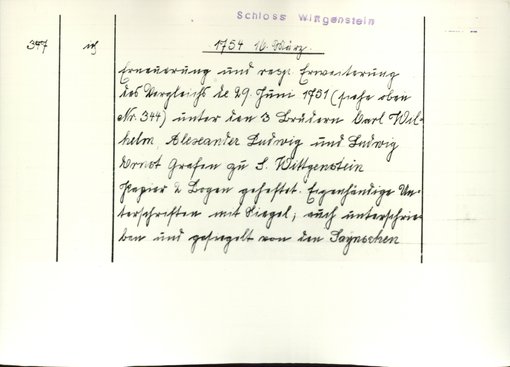 Schloss Wittgenstein
347
1754 16. März.
Erneuerung und resp. Erweiterung
des Vergleichs de 29 Juni 1751 (siehe oben
Nr. 344) unter den 3 Brüdern Carl Wil-
helm, Alexander Ludwig und Ludwig
Ernst Grafen zu S. Wittgenstein
Papier 2 Bogen geheftet. Eigenhändige Un-
terschriften mit Siegel; auch unterschrie-
ben und gesiegelt von den Saynschen